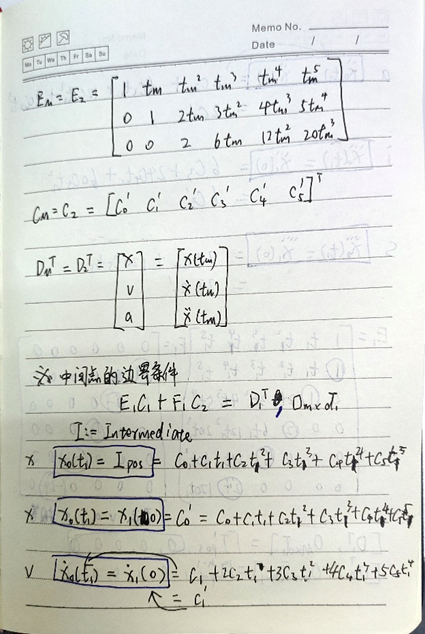 Memo No.
Mo Tu We Th Fr Sa Su
Date / /
E_M = E_2 = [1 t_m t_m^2 t_m^3 t_m^4 t_m^5
0 1 2t_m 3t_m^2 4t_m^3 5t_m^4
0 0 2 6t_m 12t_m^2 20t_m^3]
C_M = C_2 = [C_0' C_1' C_2' C_3' C_4' C_5']^T
D_M^T = D_2^T = [x v a] = [x(t_m) ẋ(t_m) ẍ(t_m)]
中间点的边界条件
E_1C_1 + F_1C_2 = D_1^T , D_{m×d_1}
I := Intermediate
x x_0(t_1) = I_pos = C_0 + C_1t_1 + C_2t_1^2 + C_3t_1^3 + C_4t_1^4 + C_5t_1^5
x x_0(t_1) = x_1(0) = C_0' = C_0 + C_1t_1 + C_2t_1^2 + C_3t_1^3 + C_4t_1^4 + C_5t_1^5
v ẋ_0(t_1) = ẋ_1(0) = C_1 + 2C_2t_1 + 3C_3t_1^2 + 4C_4t_1^3 + 5C_5t_1^4
= C_1'